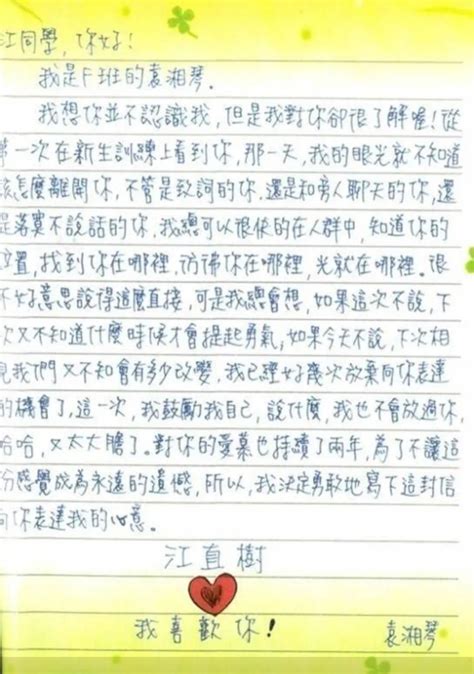 江同學，你好！
我是F班的袁湘琴。
我想你並不認識我，但是我對你卻很了解喔！從
第一次在新生訓練上看到你，那一天，我的眼光就不知道
該怎麼離開你，不管是致詞的你，還是和旁人聊天的你，還
是落寞不說話的你，我總可以很快的在人群中，知道你的
位置，找到你在哪裡，彷彿你在哪裡，光就在哪裡。很
不好意思說得這麼直接，可是我總會想，如果這次不說，下
次又不知道什麼時候才會提起勇氣，如果今天不說，下次相
見我們又不知會有多少改變，我已經好幾次放棄向你表達
的機會了，這一次，我鼓勵我自己，說什麼，我也不會放過你，
哈哈，又太大膽了。對你的愛慕也持續了兩年，為了不讓這
份感覺成為永遠的遺憾，所以，我決定勇敢地寫下這封信
向你表達我的心意。
江直樹
我喜歡你！ 袁湘琴